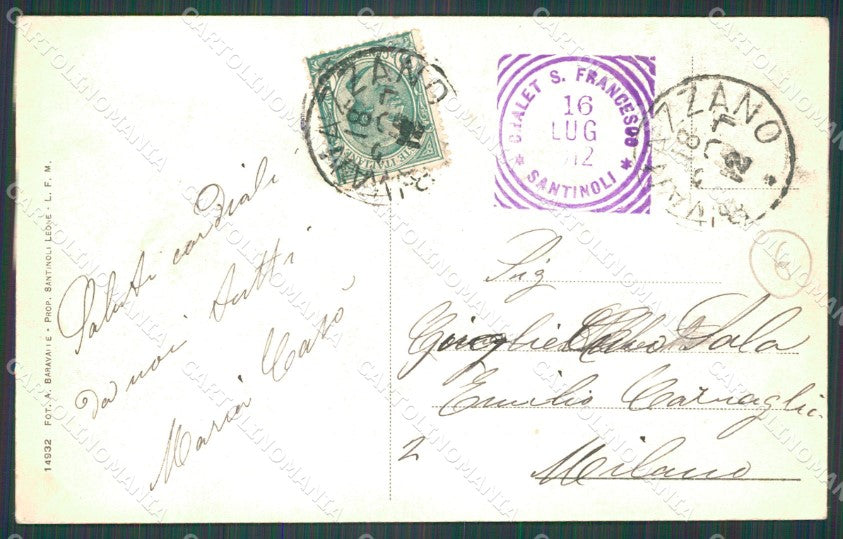 CHALET S. FRANCESCO
16
LUG
12
* SANTINOLI *
Saluti cordiali
da noi tutti
Maria Casò
Sig
Guglielmo Sala
Emilio Cornaglia
2
Milano
14932 FOT. A. BARAVALLE - PROP. SANTINOLI LEONE - L. F. M.
CARTOLINOMANIA